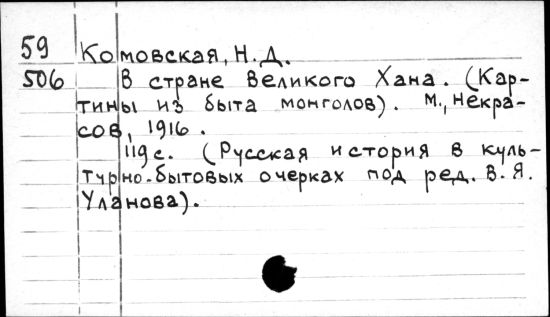 59 Комовская, Н.Д.
506 В стране Великого Хана. (Кар-
тины из быта монголов). М., Некра-
сов, 1916.
119 с. (Русская история в куль-
турно-бытовых очерках под ред. В.Я.
Уланова).